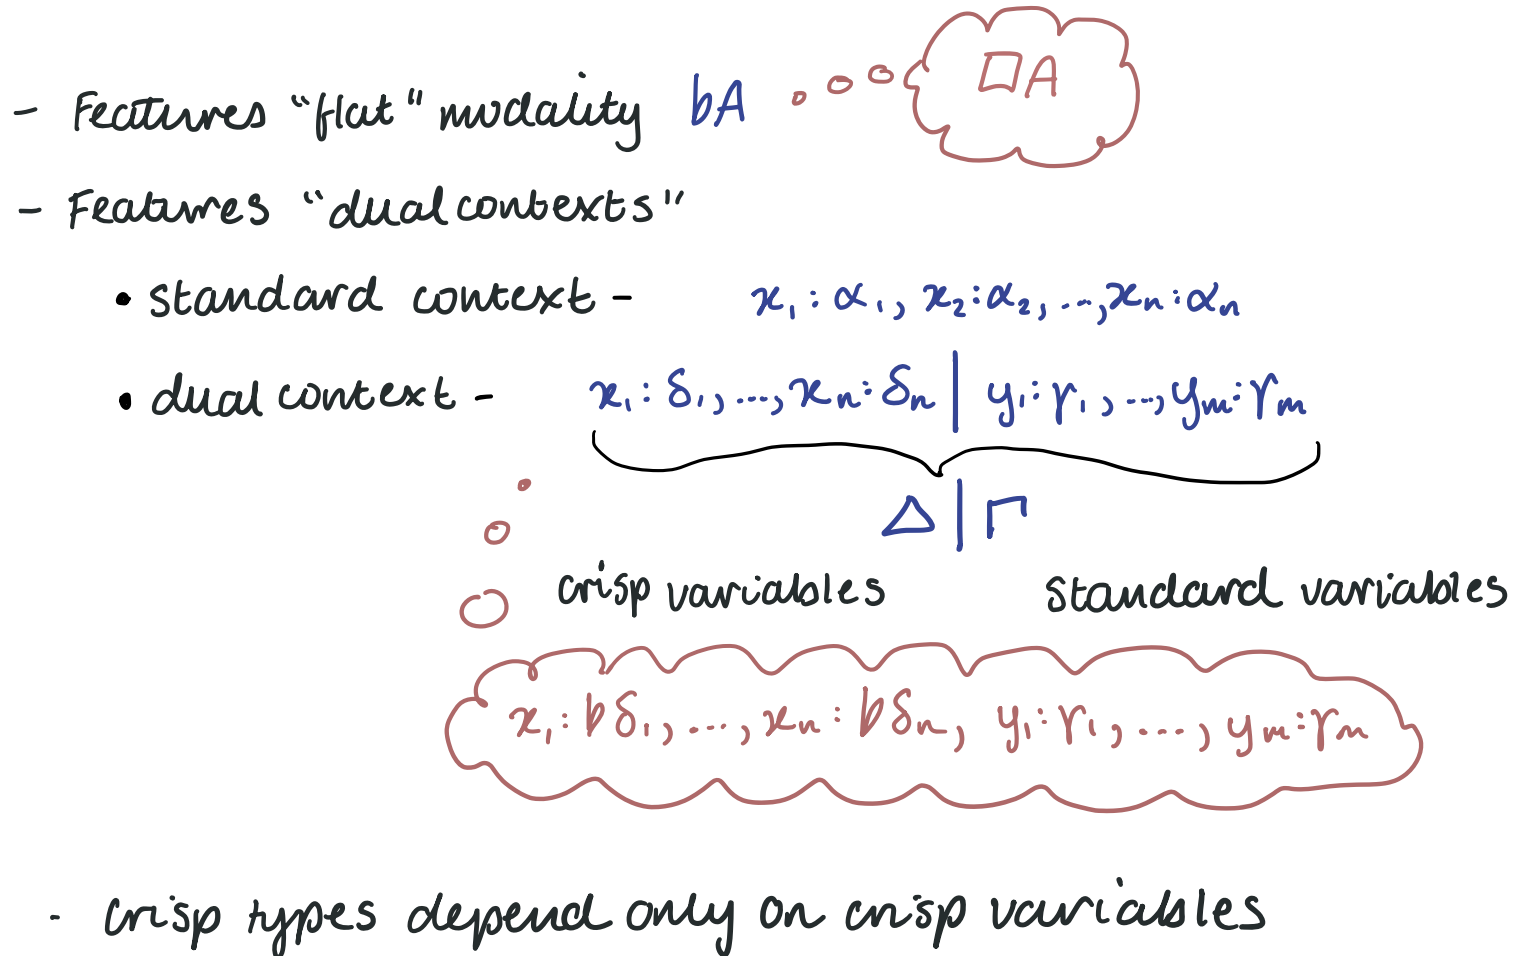 - Features "flat" modality ♭A □A
- Features "dual contexts"
• standard context - x₁:α₁, x₂:α₂, ..., xₙ:αₙ
• dual context - x₁:δ₁, ..., xₙ:δₙ | y₁:γ₁, ..., yₘ:γₘ
Δ | Γ
crisp variables standard variables
x₁:♭δ₁, ..., xₙ:♭δₙ, y₁:γ₁, ..., yₘ:γₘ
- crisp types depend only on crisp variables